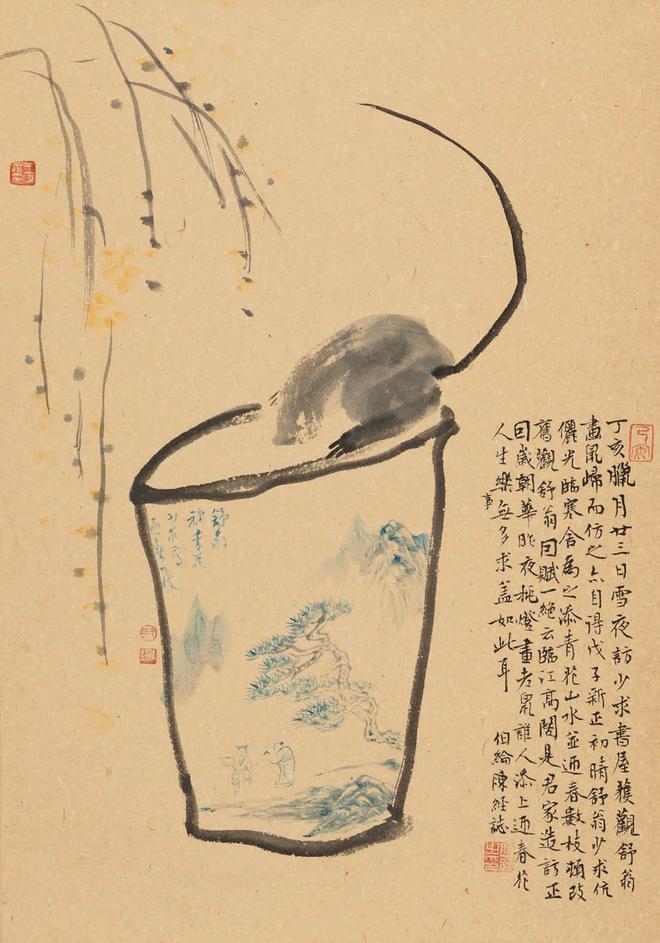 丁亥臘月廿三日雪夜訪少求書屋獲觀舒翁
畫鼠歸而仿之亦自得戊子新正初晴舒翁少求伉
儷光臨寒舍為之添青花山水並迎春數枝頓改
舊觀舒翁回賦一絕云臨江高閣是君家造訪正
回歲朝華昨夜挑燈畫老鼠誰人添上迎春花
人生樂事無多求蓋如此耳
伯綸陳經誌
舒翁
補青花
少求寫